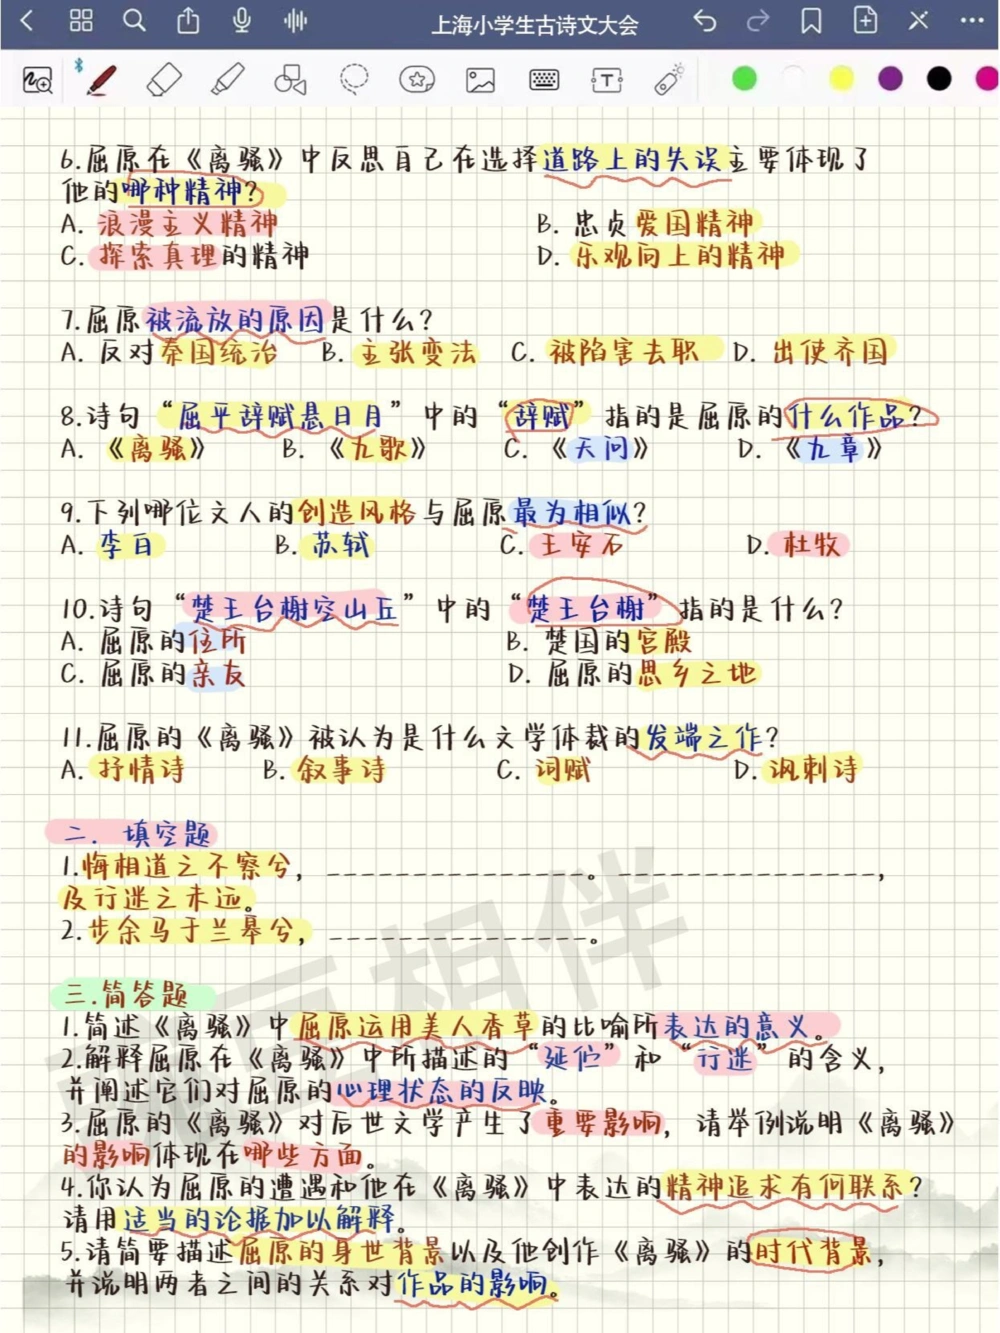 上海小学生古诗文大会
6.屈原在《离骚》中反思自己在选择道路上的失误主要体现了
他的哪种精神?
A. 浪漫主义精神 B. 忠贞爱国精神
C. 探索真理的精神 D. 乐观向上的精神
7.屈原被流放的原因是什么?
A. 反对秦国统治 B. 主张变法 C. 被陷害去职 D. 出使齐国
8.诗句“屈平辞赋悬日月”中的“辞赋”指的是屈原的什么作品?
A. 《离骚》 B. 《九歌》 C. 《天问》 D. 《九章》
9.下列哪位文人的创造风格与屈原最为相似?
A. 李白 B. 苏轼 C. 王安石 D. 杜牧
10.诗句“楚王台榭空山丘”中的“楚王台榭”指的是什么?
A. 屈原的住所 B. 楚国的宫殿
C. 屈原的亲友 D. 屈原的思乡之地
11.屈原的《离骚》被认为是什么文学体裁的发端之作?
A. 抒情诗 B. 叙事诗 C. 词赋 D. 讽刺诗
二. 填空题
1.悔相道之不察兮，_______________。_______________，
及行迷之未远。
2.步余马于兰皋兮，_______________。
三.简答题
1.简述《离骚》中屈原运用美人香草的比喻所表达的意义。
2.解释屈原在《离骚》中所描述的“延伫”和“行迷”的含义，
并阐述它们对屈原的心理状态的反映。
3.屈原的《离骚》对后世文学产生了重要影响，请举例说明《离骚》
的影响体现在哪些方面。
4.你认为屈原的遭遇和他在《离骚》中表达的精神追求有何联系?
请用适当的论据加以解释。
5.请简要描述屈原的身世背景以及他创作《离骚》的时代背景，
并说明两者之间的关系对作品的影响。